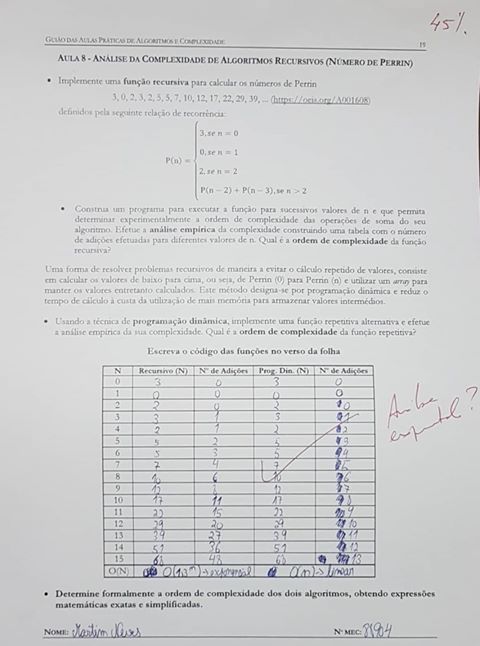 45%
GUIÃO DAS AULAS PRÁTICAS DE ALGORITMOS E COMPLEXIDADE
19
AULA 8 - ANÁLISE DA COMPLEXIDADE DE ALGORITMOS RECURSIVOS (NÚMERO DE PERRIN)
• Implemente uma função recursiva para calcular os números de Perrin
3, 0, 2, 3, 2, 5, 5, 7, 10, 12, 17, 22, 29, 39, ... (https://oeis.org/A001608)
definidos pela seguinte relação de recorrência:
3, se n = 0
0, se n = 1
P(n) =
2, se n = 2
P(n − 2) + P(n − 3), se n > 2
• Construa um programa para executar a função para sucessivos valores de n e que permita
determinar experimentalmente a ordem de complexidade das operações de soma do seu
algoritmo. Efetue a análise empírica da complexidade construindo uma tabela com o número
de adições efetuadas para diferentes valores de n. Qual é a ordem de complexidade da função
recursiva?
Uma forma de resolver problemas recursivos de maneira a evitar o cálculo repetido de valores, consiste
em calcular os valores de baixo para cima, ou seja, de Perrin (0) para Perrin (n) e utilizar um array para
manter os valores entretanto calculados. Este método designa-se por programação dinâmica e reduz o
tempo de cálculo à custa da utilização de mais memória para armazenar valores intermédios.
• Usando a técnica de programação dinâmica, implemente uma função repetitiva alternativa e efetue
a análise empírica da sua complexidade. Qual é a ordem de complexidade da função repetitiva?
Escreva o código das funções no verso da folha
N Recursivo (N) Nº de Adições Prog. Din. (N) Nº de Adições
0 3 0 3 0
1 0 0 0 0
2 2 0 2 0
3 3 1 3 1
4 2 1 2 2
5 5 2 5 3
6 5 3 5 4
7 7 4 7 5
8 10 6 10 6
9 12 12 7
10 17 11 17 8
11 22 15 22 9
12 29 20 29 10
13 39 27 39 11
14 51 36 51 12
15 68 48 68 13
O(N) O(1,3ⁿ) → exponencial O(n) → linear
• Determine formalmente a ordem de complexidade dos dois algoritmos, obtendo expressões
matemáticas exatas e simplificadas.
NOME: Martim Neves Nº MEC: 88904